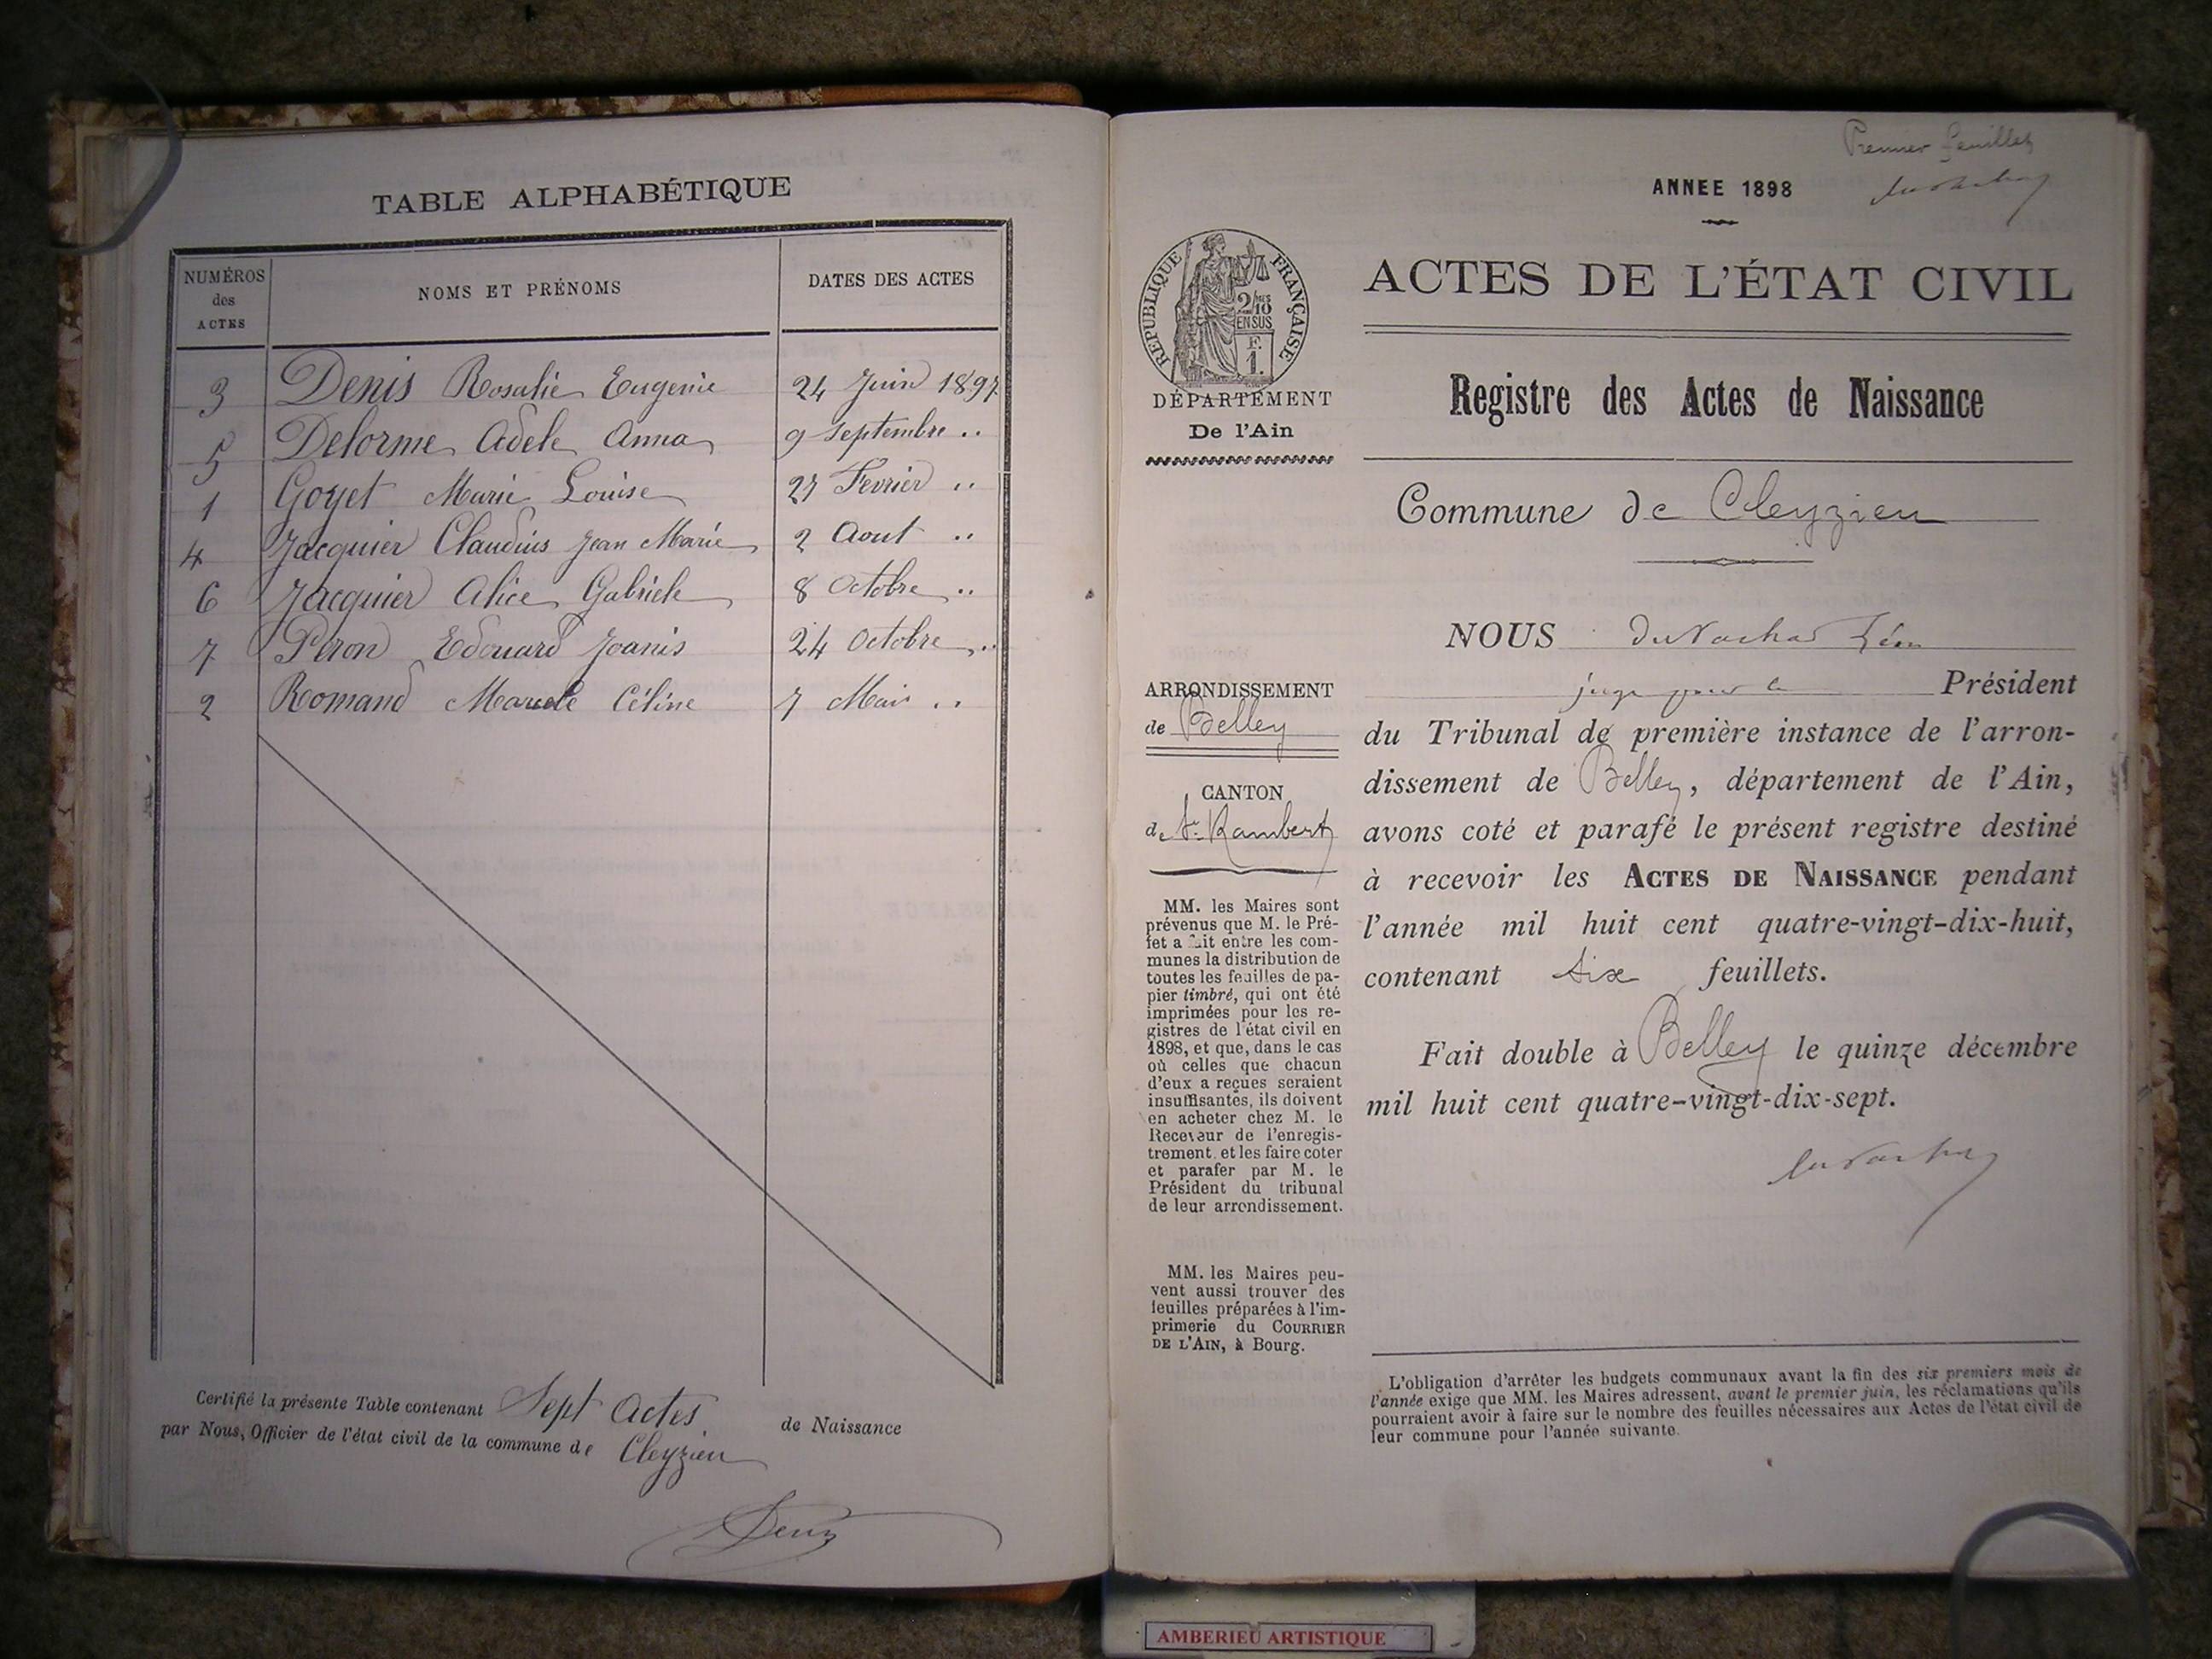 TABLE ALPHABÉTIQUE
NUMÉROS des ACTES
NOMS ET PRÉNOMS
DATES DES ACTES
3 Denis Rosalie Eugenie 24 Juin 1897
5 Delorme Adele Anna 9 Septembre ..
1 Goyet Marie Louise 27 Fevrier ..
4 Jacquier Claudius Jean Marie 2 Aout ..
6 Jacquier Alice Gabriele 8 Octobre ..
7 Peron Edouard Joanis 24 Octobre ..
2 Romand Céline 7 Mai ..
Certifié la présente Table contenant Sept Actes de Naissance
par Nous, Officier de l'état civil de la commune de Cleyzieu
Premier feuillet
ANNEE 1898
RÉPUBLIQUE FRANÇAISE
2/10
EN SUS
F.
1.
ACTES DE L'ÉTAT CIVIL
DÉPARTEMENT
De l'Ain
Registre des Actes de Naissance
Commune de Cleyzieu
NOUS
juge pour le Président
du Tribunal de première instance de l'arron-
dissement de Belley, département de l'Ain,
avons coté et parafé le présent registre destiné
à recevoir les ACTES DE NAISSANCE pendant
l'année mil huit cent quatre-vingt-dix-huit,
contenant six feuillets.
Fait double à Belley le quinze décembre
mil huit cent quatre-vingt-dix-sept.
ARRONDISSEMENT
de Belley
CANTON
de St. Rambert
MM. les Maires sont
prévenus que M. le Pré-
fet a fait entre les com-
munes la distribution de
toutes les feuilles de pa-
pier timbré, qui ont été
imprimées pour les re-
gistres de l'état civil en
1898, et que, dans le cas
où celles que chacun
d'eux a reçues seraient
insuffisantes, ils doivent
en acheter chez M. le
Receveur de l'enregis-
trement, et les faire coter
et parafer par M. le
Président du tribunal
de leur arrondissement.
MM. les Maires peu-
vent aussi trouver des
feuilles préparées à l'im-
primerie du COURRIER
DE L'AIN, à Bourg.
L'obligation d'arrêter les budgets communaux avant la fin des six premiers mois de
l'année exige que MM. les Maires adressent, avant le premier juin, les réclamations qu'ils
pourraient avoir à faire sur le nombre des feuilles nécessaires aux Actes de l'état civil de
leur commune pour l'année suivante.
AMBERIEU ARTISTIQUE